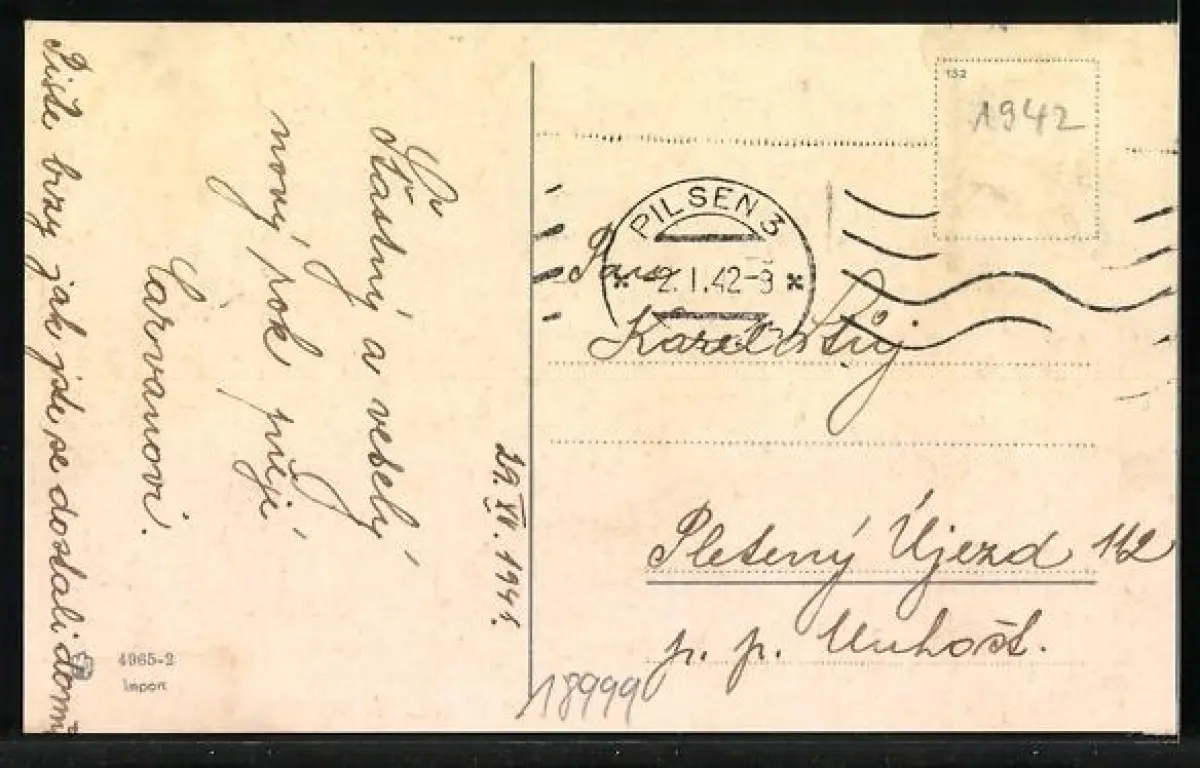 Šťastný a veselý
nový rok přejí
Červanovi.
Pište brzy jak jste se dostali domů
29. XII. 1941.
4965-2
Import
132
1942
PILSEN 3
2. I. 42-9
Pan
Karel
Pletený Újezd 112
p. p. Unhošť.
18999